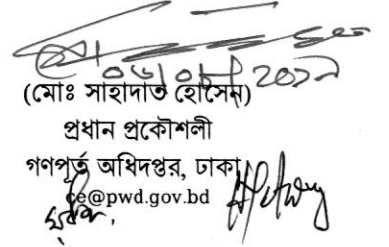 (মোঃ সাহাদাত হোসেন)
প্রধান প্রকৌশলী
গণপূর্ত অধিদপ্তর, ঢাকা
ce@pwd.gov.bd